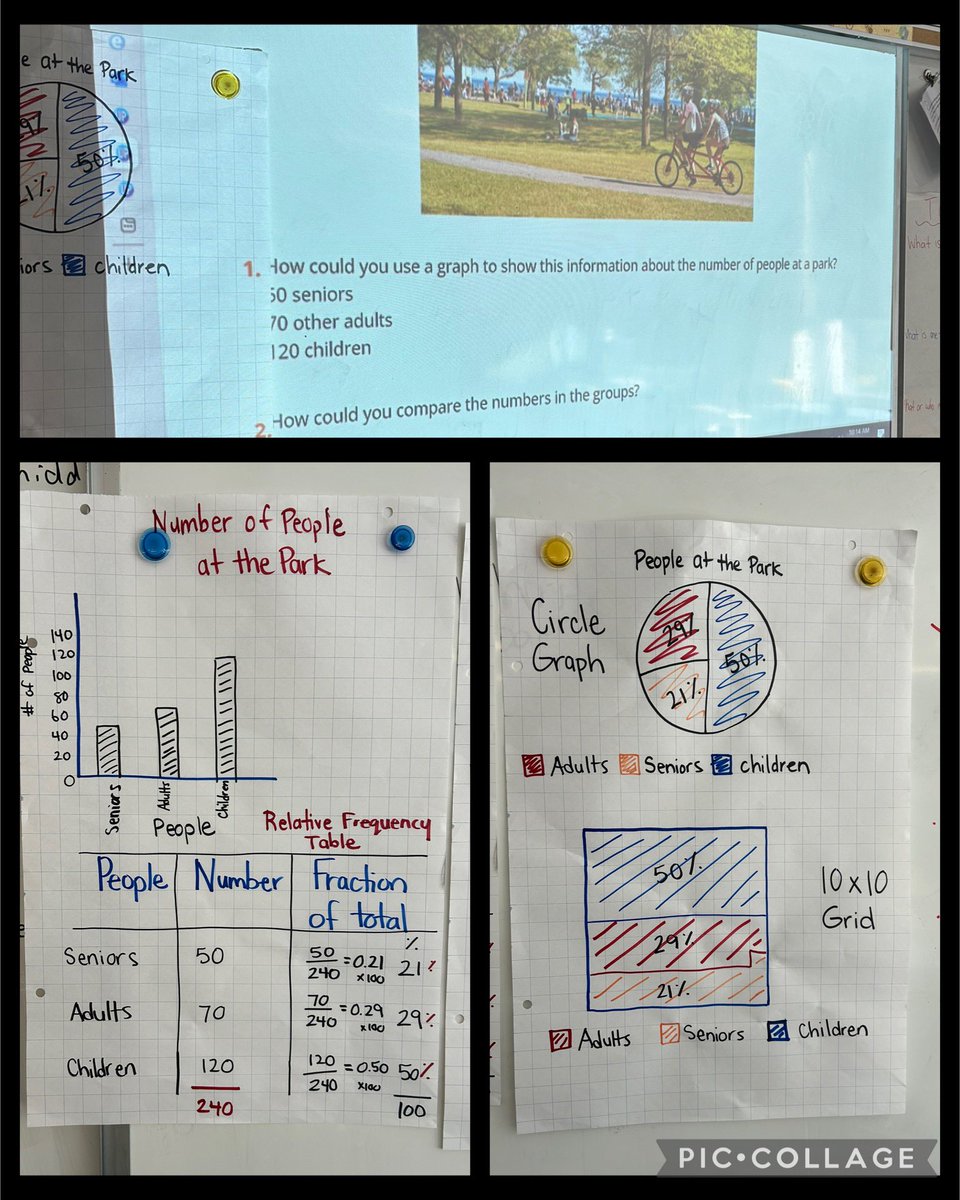 e at the Park
50%
21%
iors children
1. How could you use a graph to show this information about the number of people at a park?
50 seniors
70 other adults
120 children
2. How could you compare the numbers in the groups?
10:14 AM
What is
Number of People
at the Park
# of People
140
120
100
80
60
40
20
0
Seniors
Adults
Children
People
Relative Frequency
Table
People Number Fraction
of total
%
Seniors 50 50/240 = 0.21 x100 21%
Adults 70 70/240 = 0.29 x100 29%
Children 120 120/240 = 0.50 x100 50%
240 100
People at the Park
Circle
Graph
29%
50%
21%
Adults Seniors children
50%
29%
21%
10x10
Grid
Adults Seniors Children
PIC•COLLAGE